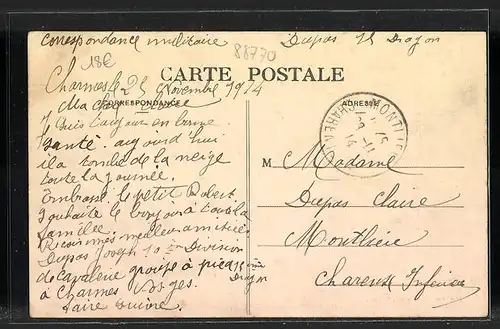 Correspondance militaire
Dupas 15 Dragon
18€
88770
CARTE POSTALE
CORRESPONDANCE
ADRESSE
Charmes le 25 Novembre 1914
Ma chère
Je suis toujours en bonne
santé. aujourd'hui
il a tombé de la neige
toute la journée.
Embrasse le petit Robert
souhaite le bonjour à toute la
famille.
Recois mes meilleur amitié.
Dupas Joseph 10 em Division
de Cavalerie groupe à pied 15 em
Dragon
à Charmes Vosges.
faire suivre
M Madame
Dupas Claire
Montlieu
Charente Inférieure